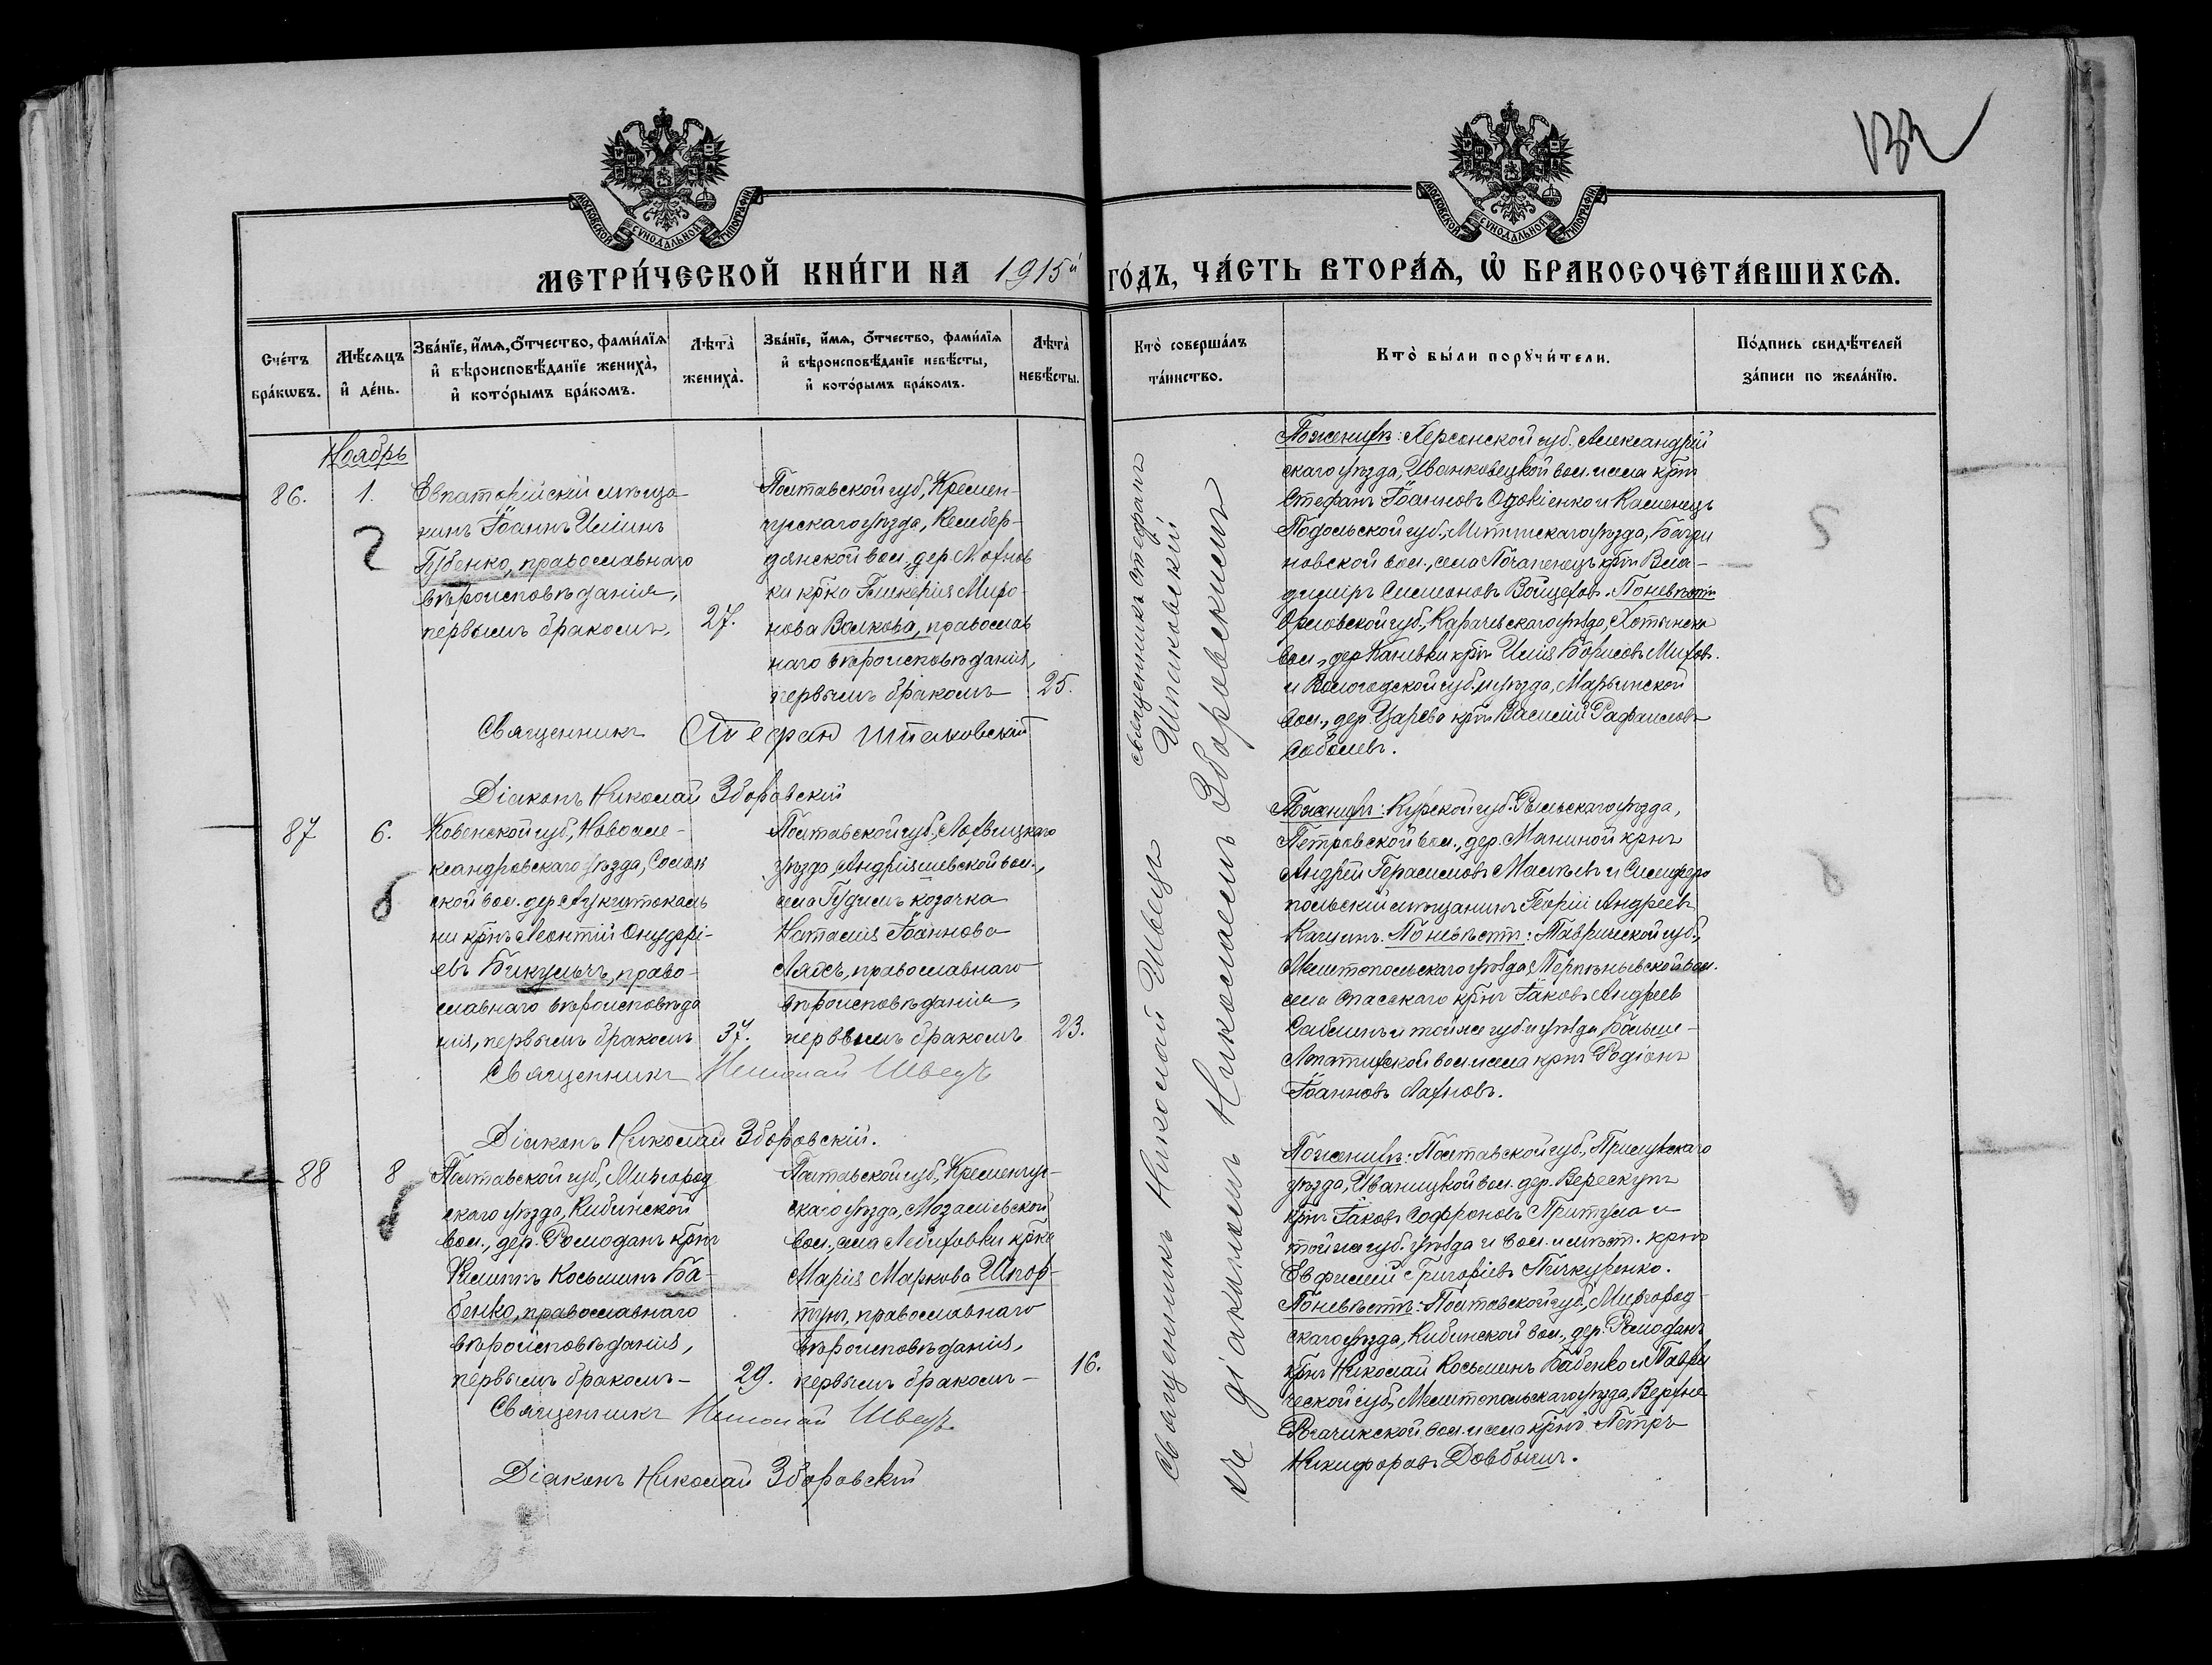 132
МОСКОВСКОЙ СУНОДАЛЬНОЙ ТИПОГРАФІИ
МОСКОВСКОЙ СУНОДАЛЬНОЙ ТИПОГРАФІИ
МЕТРИ́ЧЕСКОЙ КНИ́ГИ НА 1915й ГО́ДЪ, ЧА́СТЬ ВТОРА́Ѧ, Ѽ БРАКОСОЧЕТА́ВШИХСѦ.
Сче́тъ бра́кѡвъ.
Мѣ́сѧцъ и҆ де́нь.
Зва́нїе, и҆́мѧ, ѻ҆́тчество, фами́лїѧ и҆ вѣроисповѣ́данїе жениха̀, и҆ кото́рымъ бра́комъ.
Лѣта̀ жениха̀.
Зва́нїе, и҆́мѧ, ѻ҆́тчество, фами́лїѧ и҆ вѣроисповѣ́данїе невѣ́сты, и҆ кото́рымъ бра́комъ.
Лѣта̀ невѣ́сты.
Кто̀ соверша́лъ та́инство.
Кто̀ бы́ли порꙋчи́тели.
По́дпись свидѣ́телей за́писи по жела́нїю.
Ноябрь
86.
1.
Евпаторійскій мѣща-
нинъ Іоаннъ Иліинъ
Губенко, православнаго
вѣроисповѣданія,
первымъ бракомъ,
27.
Полтавской губ., Кремен-
чугскаго уѣзда, Келебер-
дянской вол., дер. Махнов
ки крка Гликерія Миро-
нова Волкова, православ
наго вѣроисповѣданія,
первымъ бракомъ
25.
Священникъ Стефанъ Шпаковскій
Діаконъ Николай Зборовскій
священникъ Стефанъ
Шпаковскій
По женихѣ: Херсонской губ. Александрій
скаго уѣзда, Иванковецкой вол. и села крнъ
Стефанъ Іоанновъ Одовіенко и Каменецъ
Подольской губ., Литинскаго уѣзда, Багри
новской вол., села Почапенецъ крнъ Вла-
димиръ Симеоновъ Войцехов. По невѣстѣ
Орловской губ., Карачевскаго уѣзда, Хотынск.
вол., дер. Каневки крнъ Илія Борисовъ Михов.
и Вологодской губ. и уѣзда, Марьинской
вол., дер. Царево крнъ Василій Рафаиловъ
Соболевъ.
87
6.
Ковенской губ., Новоале-
ксандровскаго уѣзда, Солок
ской вол. дер.
ни крнъ Леонтій Онуфрі-
евъ Бикульчъ, право-
славнаго вѣроисповѣда
нія, первымъ бракомъ
37.
Полтавской губ., Лохвицкаго
уѣзда, Андріяшевской вол.,
села Гудимъ козачка
Наталія Іоаннова
Ляшъ, православнаго
вѣроисповѣданія,
первымъ бракомъ
23.
Священникъ Николай Швецъ
Діаконъ Николай Зборовскій.
Священникъ Николай Швецъ
съ діакономъ Николаемъ Зборовскимъ
По женихѣ: Курской губ. Рыльскаго уѣзда,
Петровской вол., дер. Макиной крнъ
Андрей Герасимовъ Малѣевъ и Симферо
польскій мѣщанинъ Георгій Андреевъ
Качинъ. По невѣстѣ: Таврической губ.,
Мелитопольскаго уѣзда, вол.
села Спасскаго крнъ Іаковъ Андреев
Саблинъ и той же губ. и уѣзда Больше-
Лепатихской вол. и села крнъ Родіонъ
Іоанновъ Лахновъ.
88
8
Полтавской губ., Миргород
скаго уѣзда, Кибинской
вол., дер. Ромоданъ крнъ
Филиппъ Косьминъ Ба-
бенко, православнаго
вѣроисповѣданія,
первымъ бракомъ -
29.
Полтавской губ., Кременчуг-
скаго уѣзда, Мозалѣевской
вол., села Лебиховки крка
Марія Маркова Шпор-
тунъ, православнаго
вѣроисповѣданія,
первымъ бракомъ -
16.
Священникъ Николай Швецъ
Діаконъ Николай Зборовскій
По женихѣ: Полтавской губ., Прилукскаго
уѣзда, Иваницкой вол. дер. Верескунъ
крнъ Іаковъ Софроновъ Притула и
той же губ. уѣзда и вол. и мѣст. крнъ
Евфимій Григоріевъ Пичкуренко.
По невѣстѣ: Полтавской губ., Миргород-
скаго уѣзда, Кибинской вол., дер. Ромоданъ
крнъ Николай Косьминъ Бабенко и Таври
ческой губ. Мелитопольскаго уѣзда, Верхне
Рогачикской вол. и села крнъ Петръ
Никифоровъ Довбышъ.